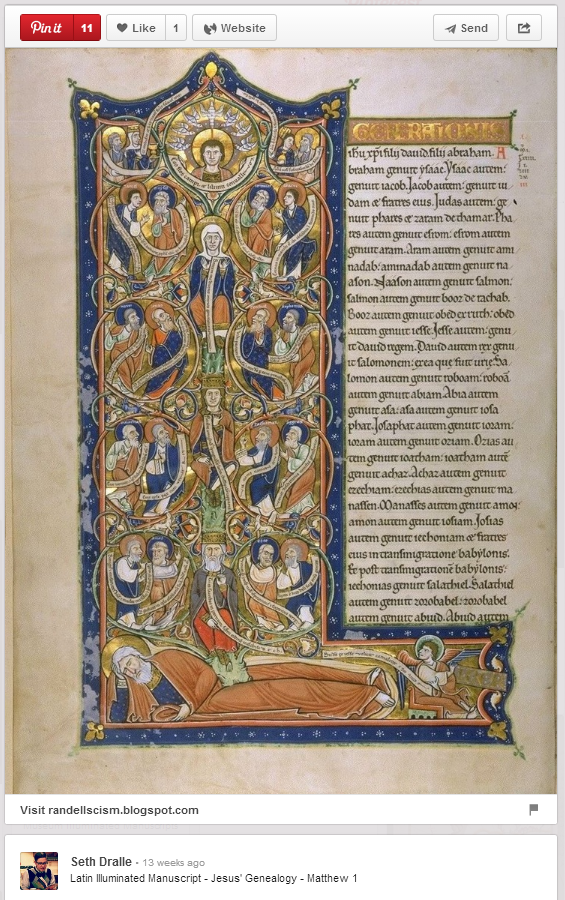 Pin it 11 Like 1 Website Send
ihu xpi filij dauid filij abraham. A
braham genuit ysaac. Ysaac autem:
genuit iacob. Jacob autem: genuit iu
dam & fratres eius. Judas autem: ge
nuit phares & zaram de thamar. Pha
res autem genuit esrom: esrom autem
genuit aram. Aram autem genuit ami
nadab: aminadab autem genuit na
ason. Naason autem genuit salmon:
salmon autem genuit booz de rachab.
Booz autem genuit obed ex ruth: obed
autem genuit iesse. Jesse autem: genu
it dauid regem. Dauid autem rex genu
it salomonem: ex ea que fuit urie. Sa
lomon autem genuit roboam: roboã
autem genuit abiam. Abia autem
genuit asa: asa autem genuit iosa
phat. Josaphat autem genuit ioram:
ioram autem genuit oziam. Ozias au
tem genuit ioatham: ioatham autẽ
genuit achaz. Achaz autem genuit
ezechiam: ezechias autem genuit ma
nassen. Manasses autem genuit amon:
amon autem genuit iosiam. Josias
autem genuit iechoniam & fratres
eius in transmigratione babylonis.
Et post transmigrationẽ babylonis:
iechonias genuit salathiel. Salathiel
autem genuit zorobabel: zorobabel
autem genuit abiud. Abiud autem
Visit randellscism.blogspot.com
Seth Dralle • 13 weeks ago
Latin Illuminated Manuscript - Jesus' Genealogy - Matthew 1